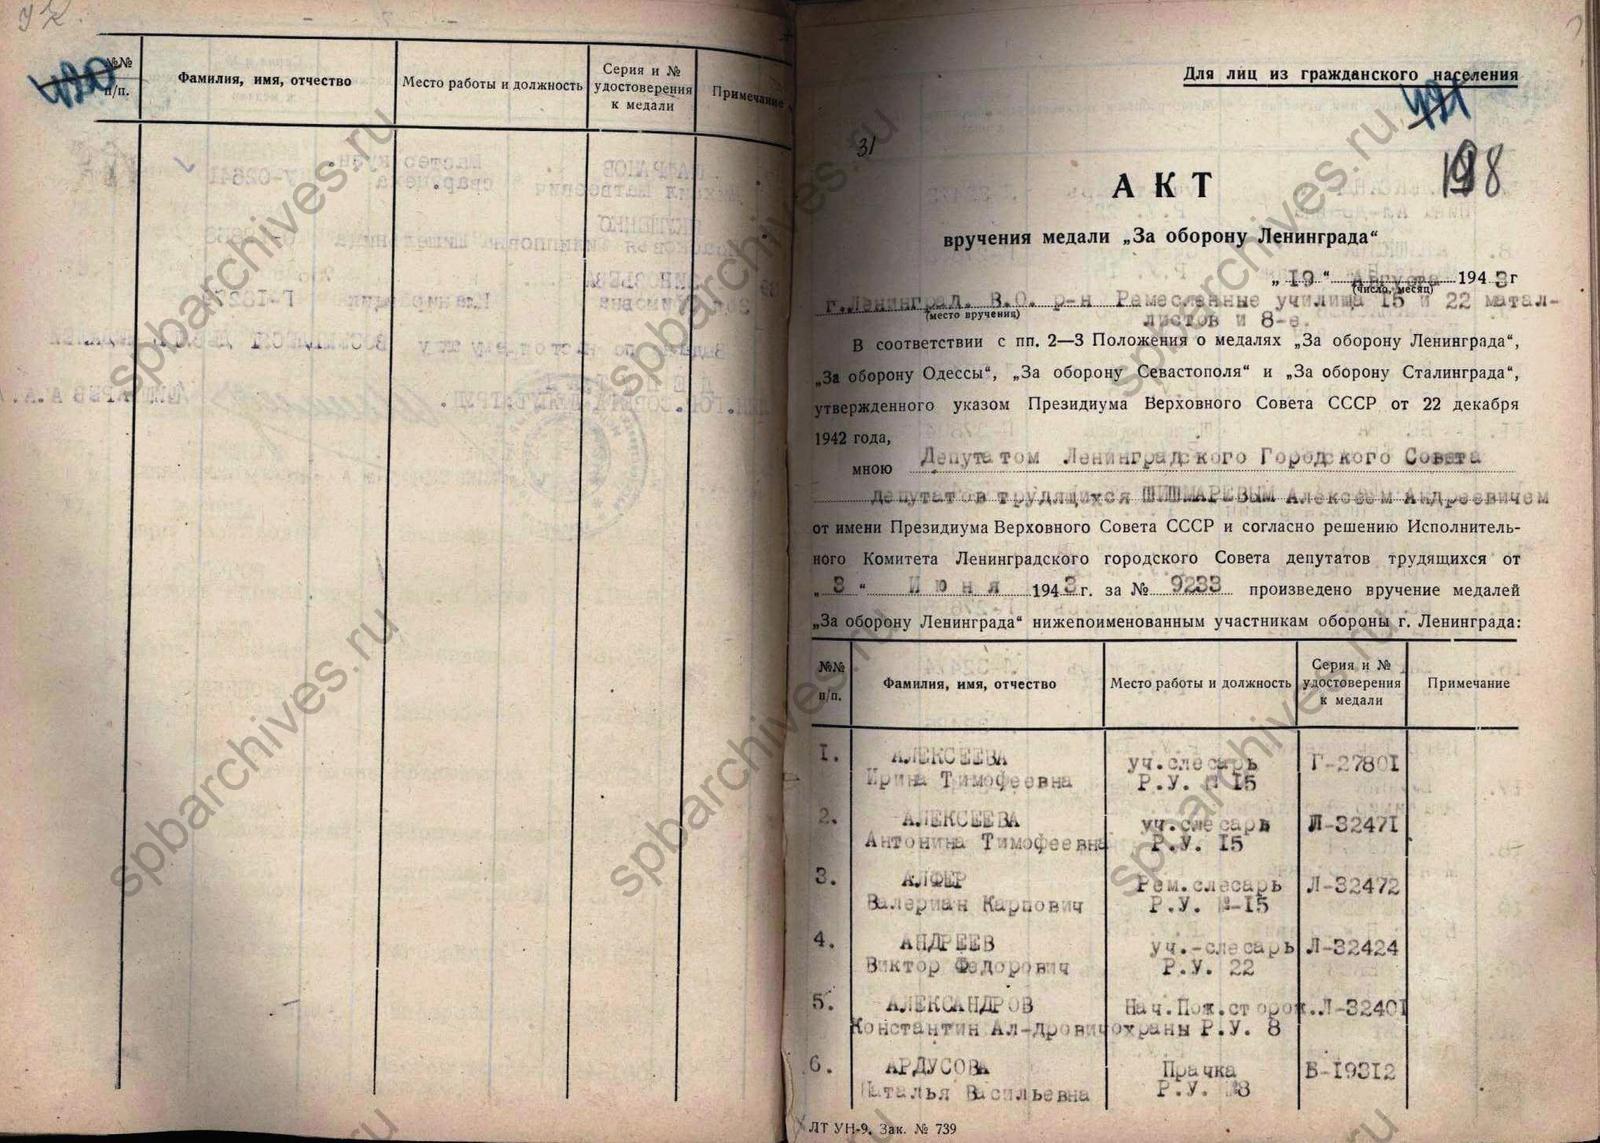 №№
п/п.
Фамилия, имя, отчество
Место работы и должность
Серия и №
удостоверения
к медали
Примечание
420
Для лиц из гражданского населения
421
31
198
АКТ
вручения медали „За оборону Ленинграда“
„19“ Августа 1943г
(число, месяц)
г.Ленинград. В.О. р-н Ремесленные училища 15 и 22 метал-
(место вручения)
листов и 8-е.
В соответствии с пп. 2—3 Положения о медалях „За оборону Ленинграда“,
„За оборону Одессы“, „За оборону Севастополя“ и „За оборону Сталинграда“,
утвержденного указом Президиума Верховного Совета СССР от 22 декабря
1942 года,
мною Депутатом Ленинградского Городского Совета
Депутатов трудящихся ШИШМАРЕВЫМ Алексеем Андреевичем
от имени Президиума Верховного Совета СССР и согласно решению Исполнитель-
ного Комитета Ленинградского городского Совета депутатов трудящихся от
„3“ Июня 1943г. за № 9233 произведено вручение медалей
„За оборону Ленинграда“ нижепоименованным участникам обороны г. Ленинграда:
№№
п/п.
Фамилия, имя, отчество
Место работы и должность
Серия и №
удостоверения
к медали
Примечание
1. АЛЕКСЕЕВА уч.слесарь Г-27801
Ирина Тимофеевна Р.У. № 15
2. АЛЕКСЕЕВА уч.слесарь Л-32471
Антонина Тимофеевна Р.У. 15
3. АЛФЕР Рем.слесарь Л-32472
Валериан Карпович Р.У. №-15
4. АНДРЕЕВ уч.-слесарь Л-32424
Виктор Федорович Р.У. 22
5. АЛЕКСАНДРОВ Нач.Пож.сторож. Л-32401
Константин Ал-дрович охраны Р.У. 8
6. АРДУСОВА Прачка Б-19312
Наталья Васильевна Р.У. №8
ЛТ УН-9. Зак. № 739
spbarchives.ru
spbarchives.ru
spbarchives.ru
spbarchives.ru
spbarchives.ru
spbarchives.ru